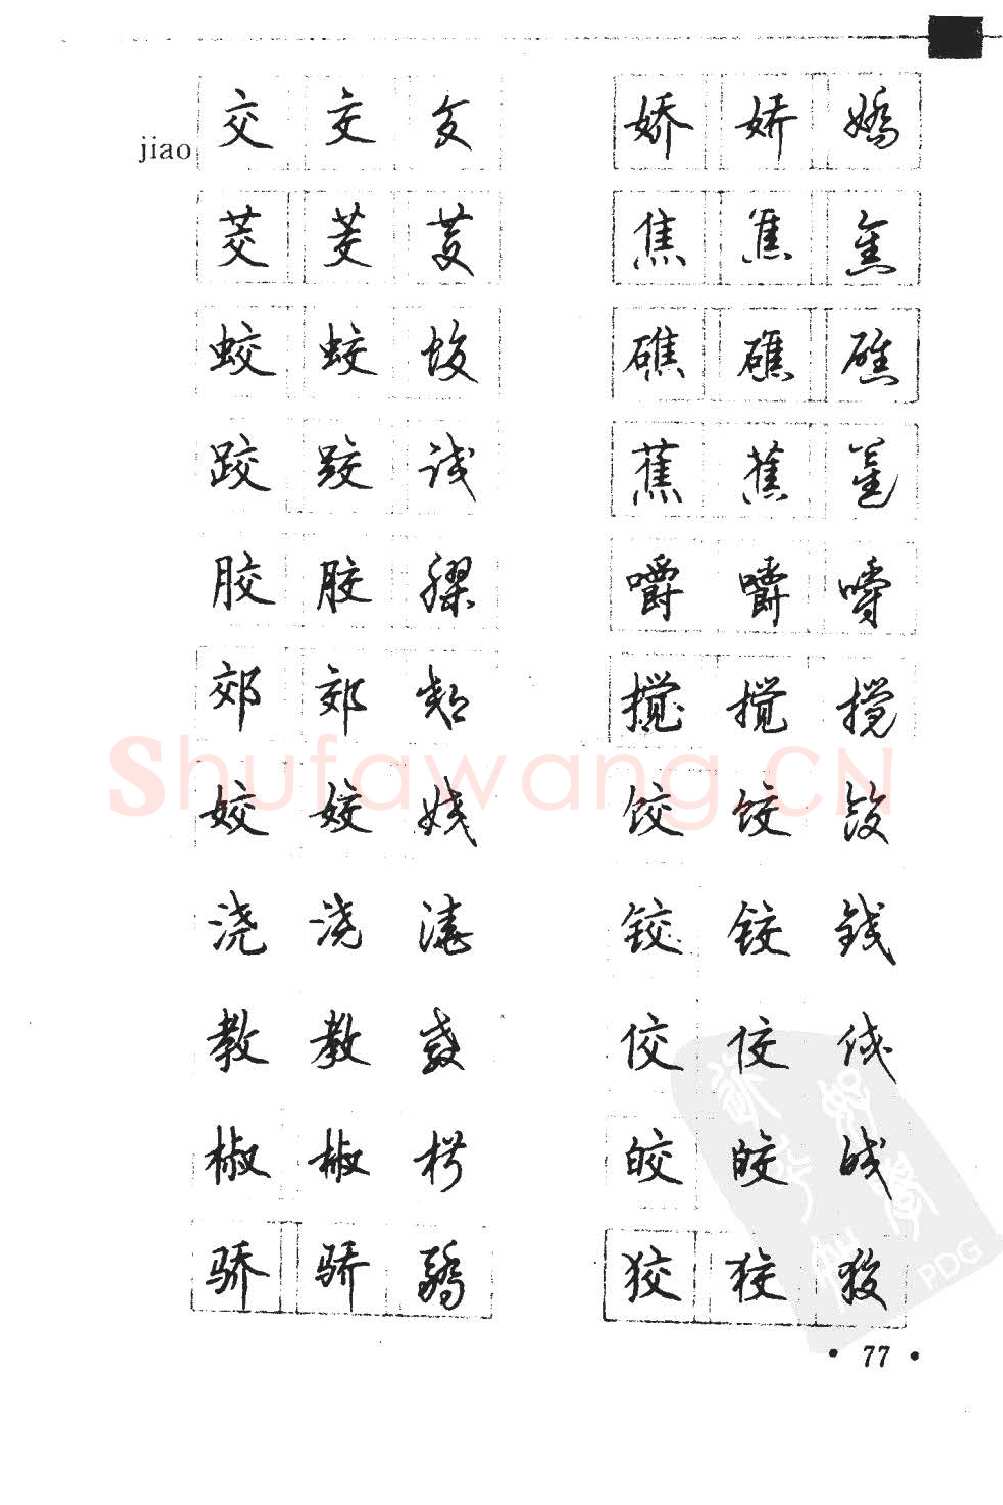 jiao 交 交 交
茭 茭 茭
蛟 蛟 蛟
跤 跤 跤
胶 胶 膠
郊 郊 郊
姣 姣 姣
浇 浇 浇
教 教 教
椒 椒 椒
骄 骄 驕
娇 娇 嬌
焦 焦 焦
礁 礁 礁
蕉 蕉 蕉
嚼 嚼 嚼
搅 搅 搅
饺 饺 饺
铰 铰 铰
佼 佼 佼
皎 皎 皎
狡 狡 狡
Shufawang.CN
PDG
• 77 •